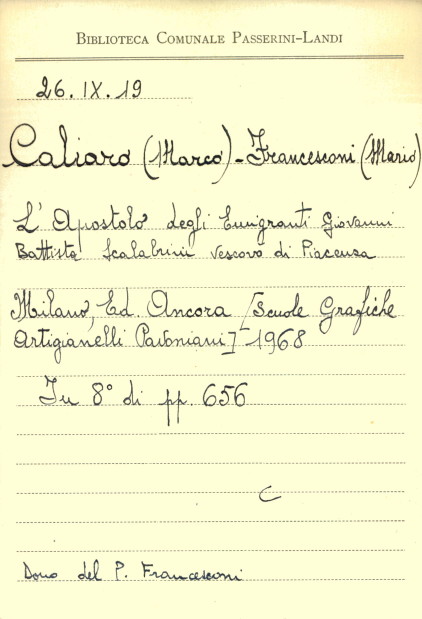 BIBLIOTECA COMUNALE PASSERINI-LANDI
26.IX.19
Caliaro (Marco) - Francesconi (Mario)
L'Apostolo degli Emigranti Giovanni
Battista Scalabrini Vescovo di Piacenza
Milano, Ed. Ancora [Scuole Grafiche
Artigianelli Pavoniani] - 1968
In 8° di pp. 656
C
Dono del P. Francesconi